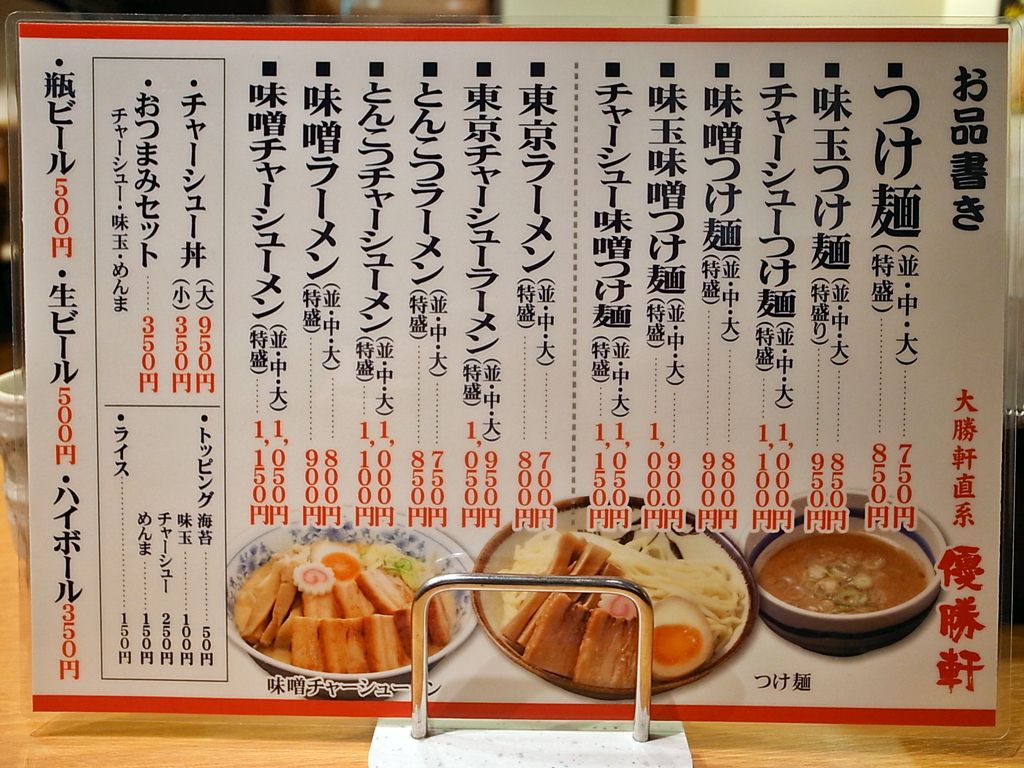 お品書き
大勝軒直系 優勝軒
■つけ麺(並・中・大)……750円
(特盛)……850円
■味玉つけ麺(並・中・大)……850円
(特盛り)……950円
■チャーシューつけ麺(並・中・大)……1,000円
(特盛)……1,100円
■味噌つけ麺(並・中・大)……800円
(特盛)……900円
■味玉味噌つけ麺(並・中・大)……900円
(特盛)……1,000円
■チャーシュー味噌つけ麺(並・中・大)……1,050円
(特盛)……1,150円
■東京ラーメン(並・中・大)……700円
(特盛)……800円
■東京チャーシューラーメン(並・中・大)950円
(特盛)1,050円
■とんこつラーメン(並・中・大)……750円
(特盛)……850円
■とんこつチャーシューメン(並・中・大)1,000円
(特盛)……1,100円
■味噌ラーメン(並・中・大)……800円
(特盛)……900円
■味噌チャーシューメン(並・中・大)1,050円
(特盛)……1,150円
・チャーシュー丼(大)950円
(小)350円
・おつまみセット……350円
チャーシュー・味玉・めんま
・トッピング 海苔……50円
味玉……100円
チャーシュー……250円
めんま……150円
・ライス……150円
・瓶ビール500円・生ビール500円・ハイボール350円
味噌チャーシューメン
つけ麺